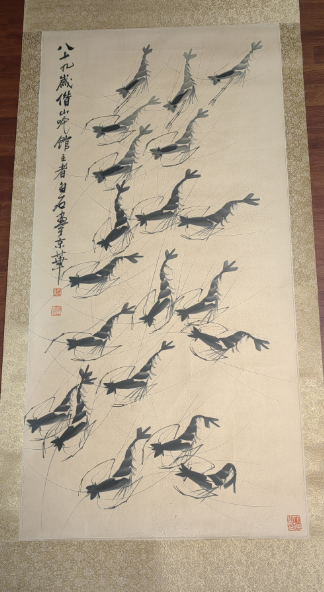 八十九歲借山吟館主者白石畫于京華